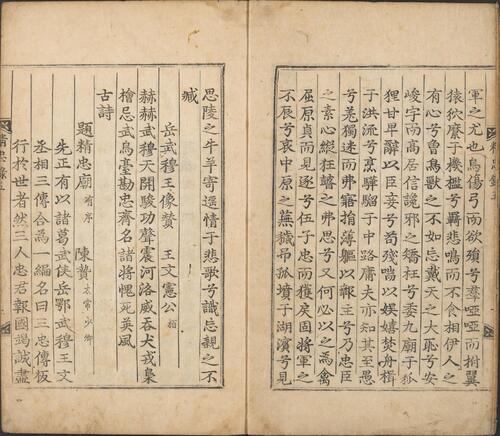 軍之尤也鳥傷弓而欲殞兮羣啞啞而拊翼
猿狖縻于機檻兮羇悲鳴而不食相伊人之
有心兮曾鳥獸之不如忘戴天之大恥兮安
峻宇而高居信讒邪之矯枉兮委九廟于狐
狸甘卑辭以臣妾兮苟殘喘以娛嬉焚舟楫
于洪流兮烹騨騮于中路庸夫亦知其至愚
兮羗獨迷而弗寤揹薄軀以報主兮乃忠臣
之素心縱狂瞽之弗思兮又何必以之爲禽
屈原貞而見逐兮伍子忠而獲戾固將軍之
不辰兮哀中原之蕪穢吊孤墳于湖濱兮見
思陵之牛羊寄遥情于悲歌兮識忘親之不
臧
岳武穆王像贊 王文憲公 栢
赫赫武穆天開駿功聲震河洛威吞犬戎梟
檜忌武烏臺勘忠齋名諸將愧死英風
古詩
題精忠廟 有序 陳贄 太常少卿
先正有以諸葛武侯岳鄂武穆王文
丞相三傳合爲一編名曰三忠傳板
行於世者然三人忠君報國竭誠盡
精忠錄五